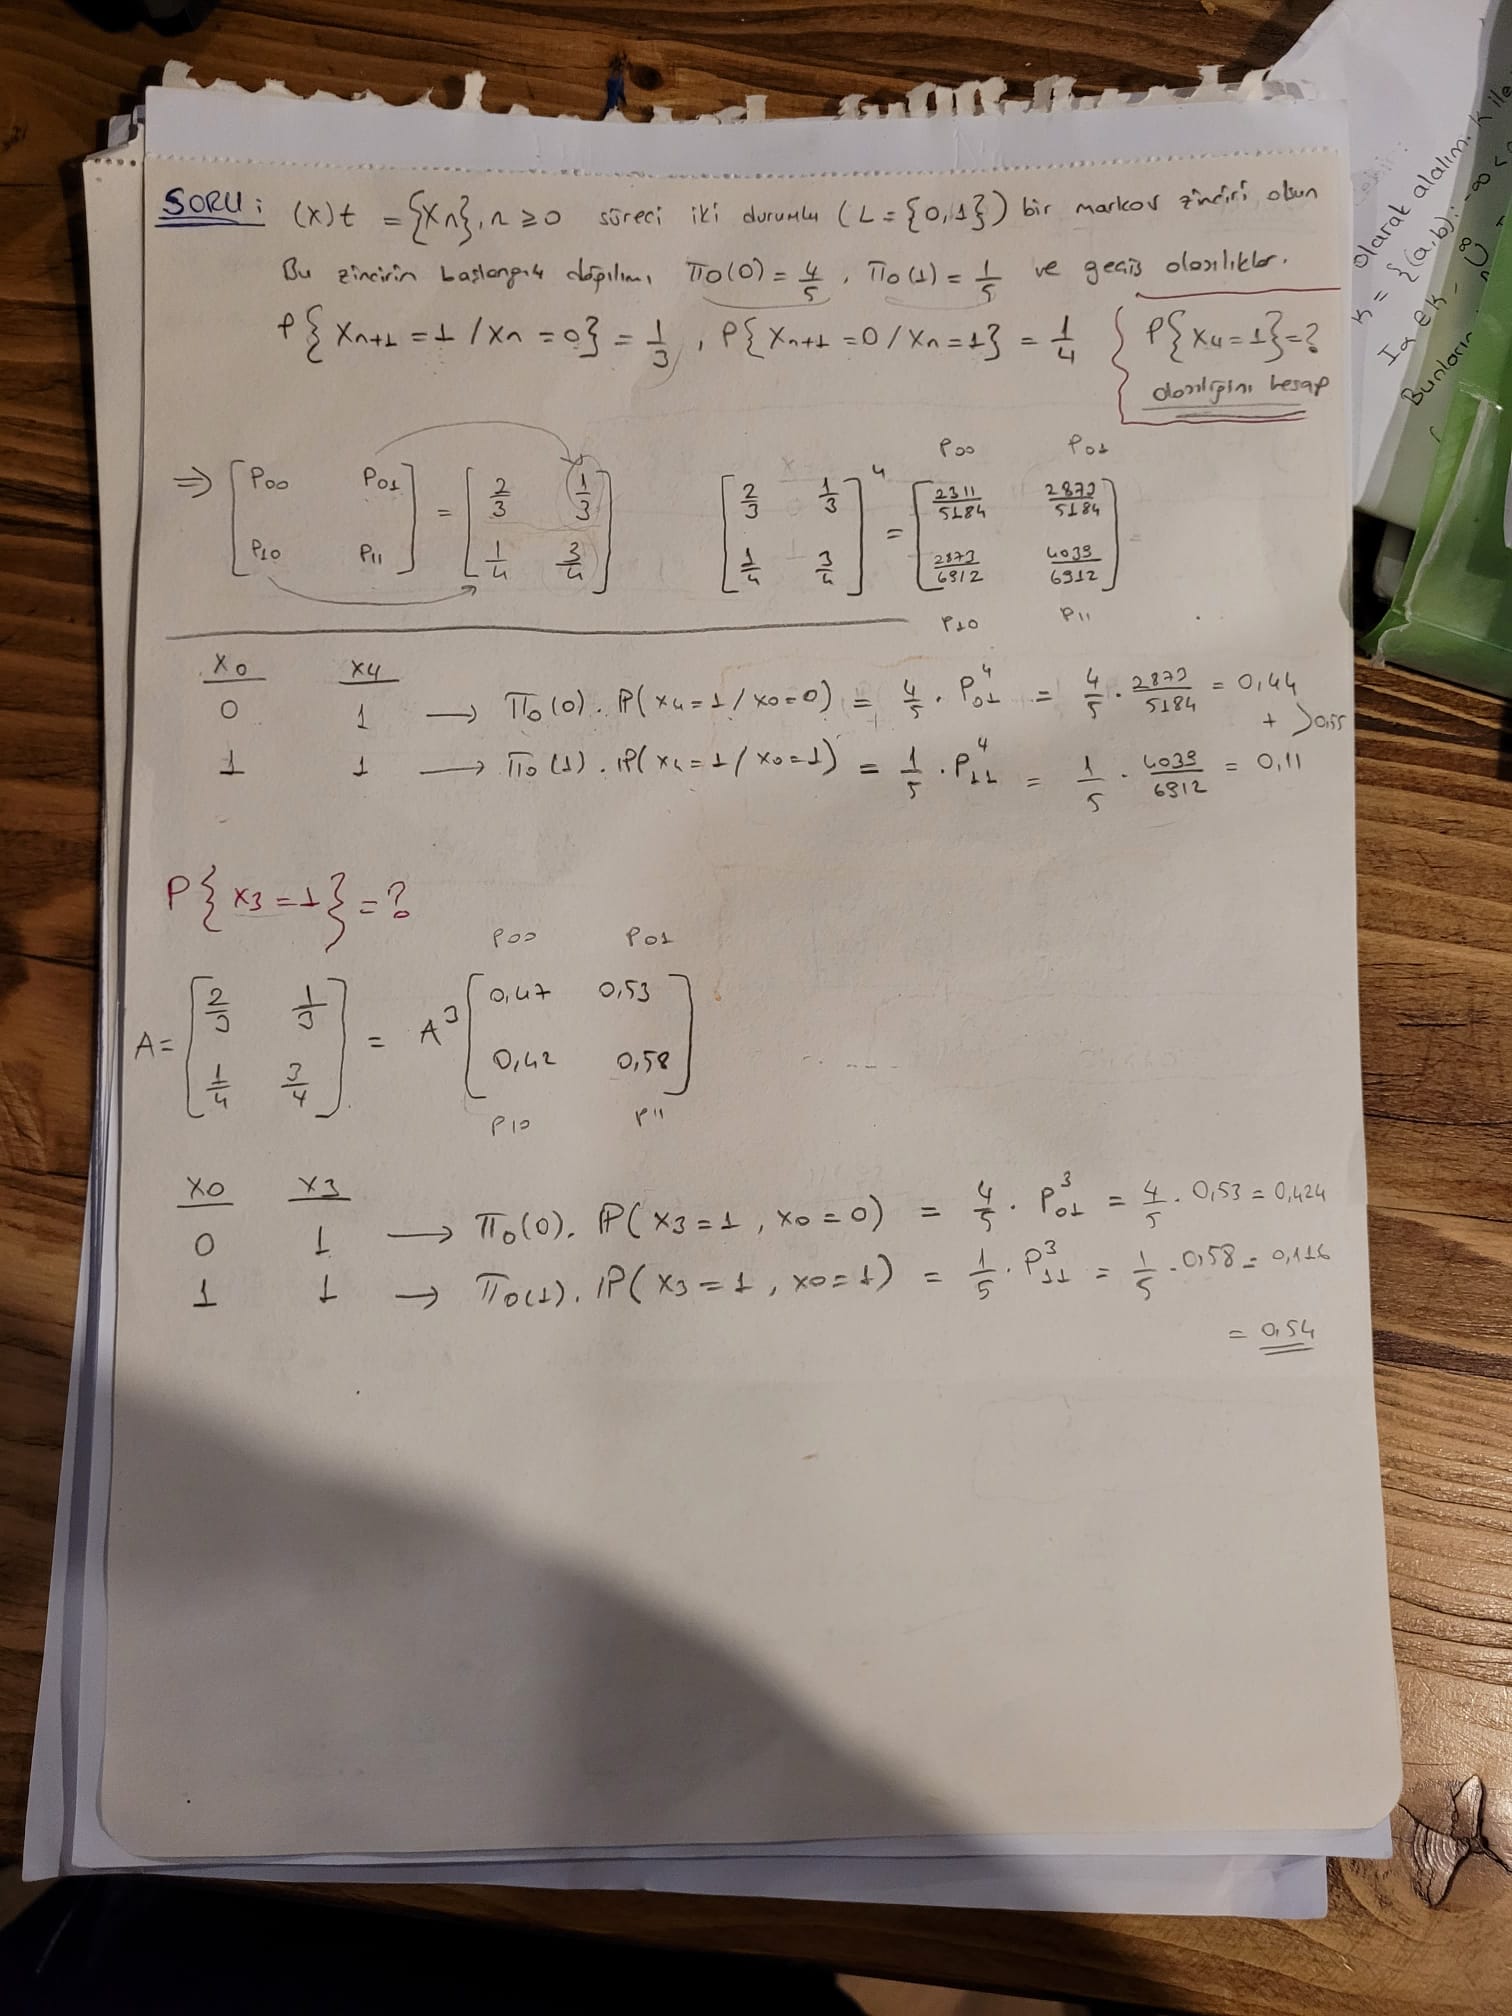 SORU : (x)t = {Xn}, n ≥ 0 süreci iki durumlu (L = {0,1}) bir markov zinciri olsun
Bu zincirin başlangıç dağılımı π0(0) = 4/5, π0(1) = 1/5 ve geçiş olasılıklar.
P{Xn+1 = 1 / Xn = 0} = 1/3, P{Xn+1 = 0 / Xn = 1} = 1/4 { P{X4 = 1} = ?
olasılığını hesap
⇒ [P00 P01; P10 P11] = [2/3 1/3; 1/4 3/4]
P00 P01
[2/3 1/3; 1/4 3/4]^4 = [2311/5184 2873/5184; 2873/6912 4039/6912] =
P10 P11
X0 X4
0 1 → π0(0) . P(X4 = 1 / X0 = 0) = 4/5 . P01^4 = 4/5 . 2873/5184 = 0,44
+ > 0,55
1 1 → π0(1) . P(X4 = 1 / X0 = 1) = 1/5 . P11^4 = 1/5 . 4039/6912 = 0,11
P{X3 = 1} = ?
P00 P01
A = [2/3 1/3; 1/4 3/4] = A^3 [0,47 0,53; 0,42 0,58]
P10 P11
X0 X3
0 1 → π0(0) . P(X3 = 1, X0 = 0) = 4/5 . P01^3 = 4/5 . 0,53 = 0,424
1 1 → π0(1) . P(X3 = 1, X0 = 1) = 1/5 . P11^3 = 1/5 . 0,58 = 0,116
= 0,54
olarak alalım. K ile
K = {(a,b): -∞ ≤
Bunların